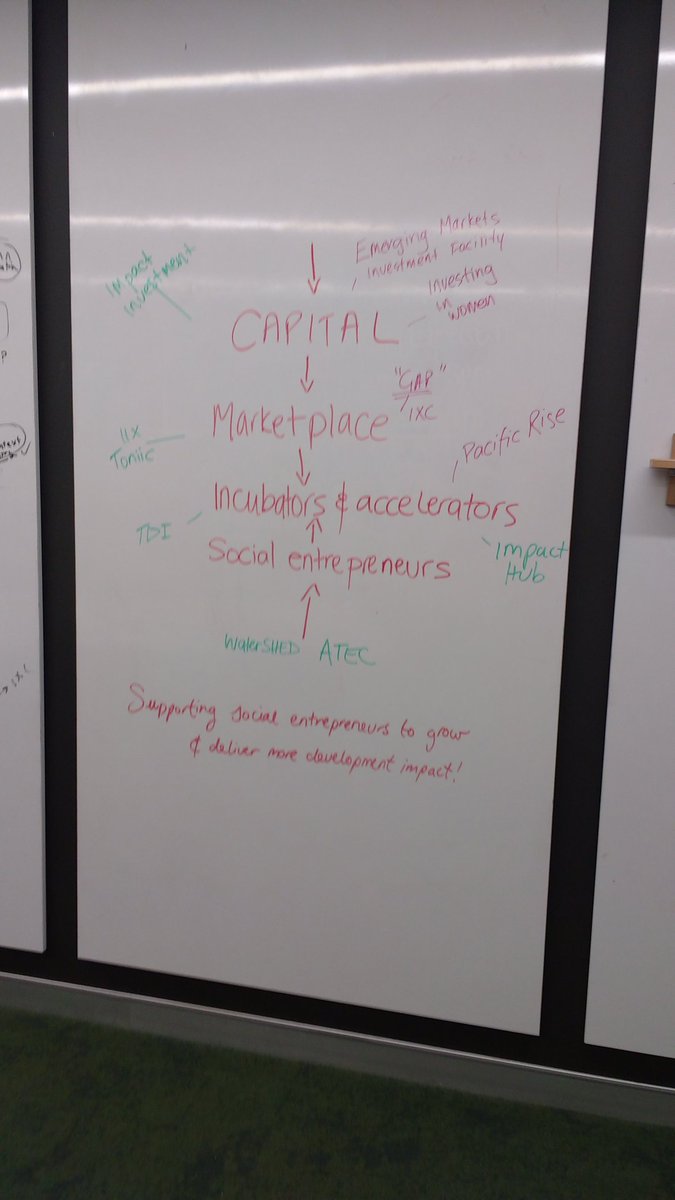 Emerging Markets
Investment Facility
Impact
investment
Investing
in
women
CAPITAL
"GAP"
IXC
Marketplace
IIX
Toniic
Pacific Rise
Incubators & accelerators
TDI
Impact
Hub
Social entrepreneurs
WaterSHED ATEC
Supporting social entrepreneurs to grow
& deliver more development impact!